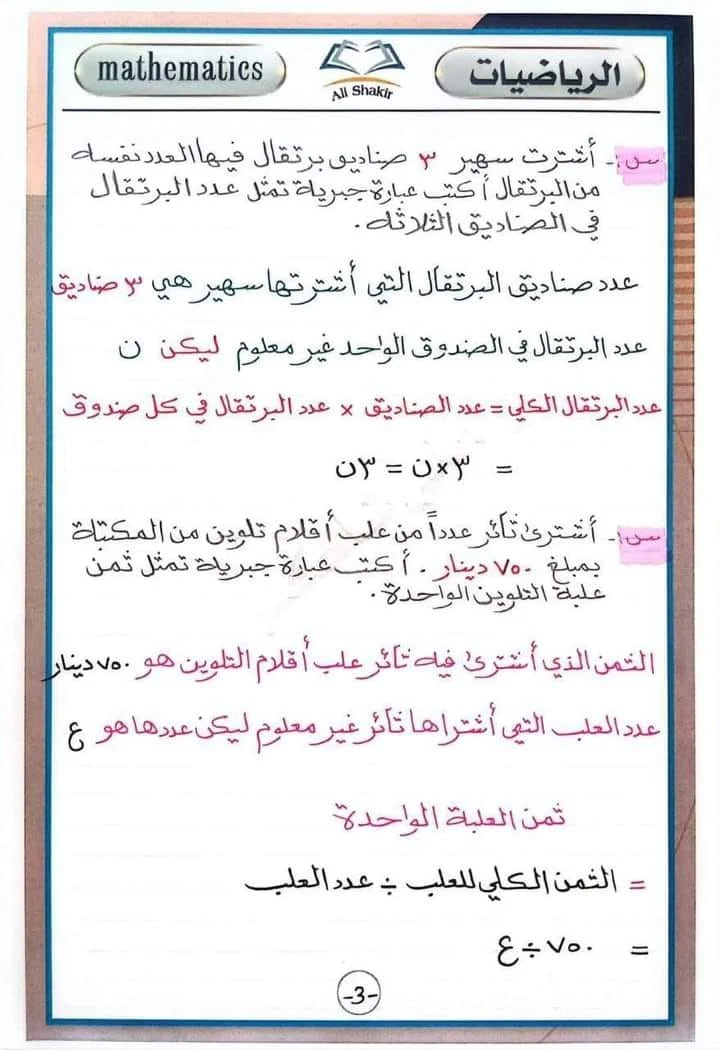 الرياضيات
Ali Shakir
mathematics
س١- أشترت سهير ٣ صناديق برتقال فيها العدد نفسه
من البرتقال أكتب عبارة جبرية تمثل عدد البرتقال
في الصناديق الثلاثه.
عدد صناديق البرتقال التي أشترتها سهير هي ٣ صناديق
عدد البرتقال في الصندوق الواحد غير معلوم ليكن ن
عدد البرتقال الكلي = عدد الصناديق × عدد البرتقال في كل صندوق
= ٣×ن = ٣ن
س١- أشترى ثائر عدداً من علب أقلام تلوين من المكتبة
بمبلغ ٧٥٠ دينار . أكتب عبارة جبرية تمثل ثمن
علبة التلوين الواحدة.
الثمن الذي أشترى فيه ثائر علب أقلام التلوين هو ٧٥٠ دينار
عدد العلب التي أشتراها ثائر غير معلوم ليكن عددها هو ع
ثمن العلبة الواحدة
= الثمن الكلي للعلب ÷ عدد العلب
= ٧٥٠ ÷ ع
-3-